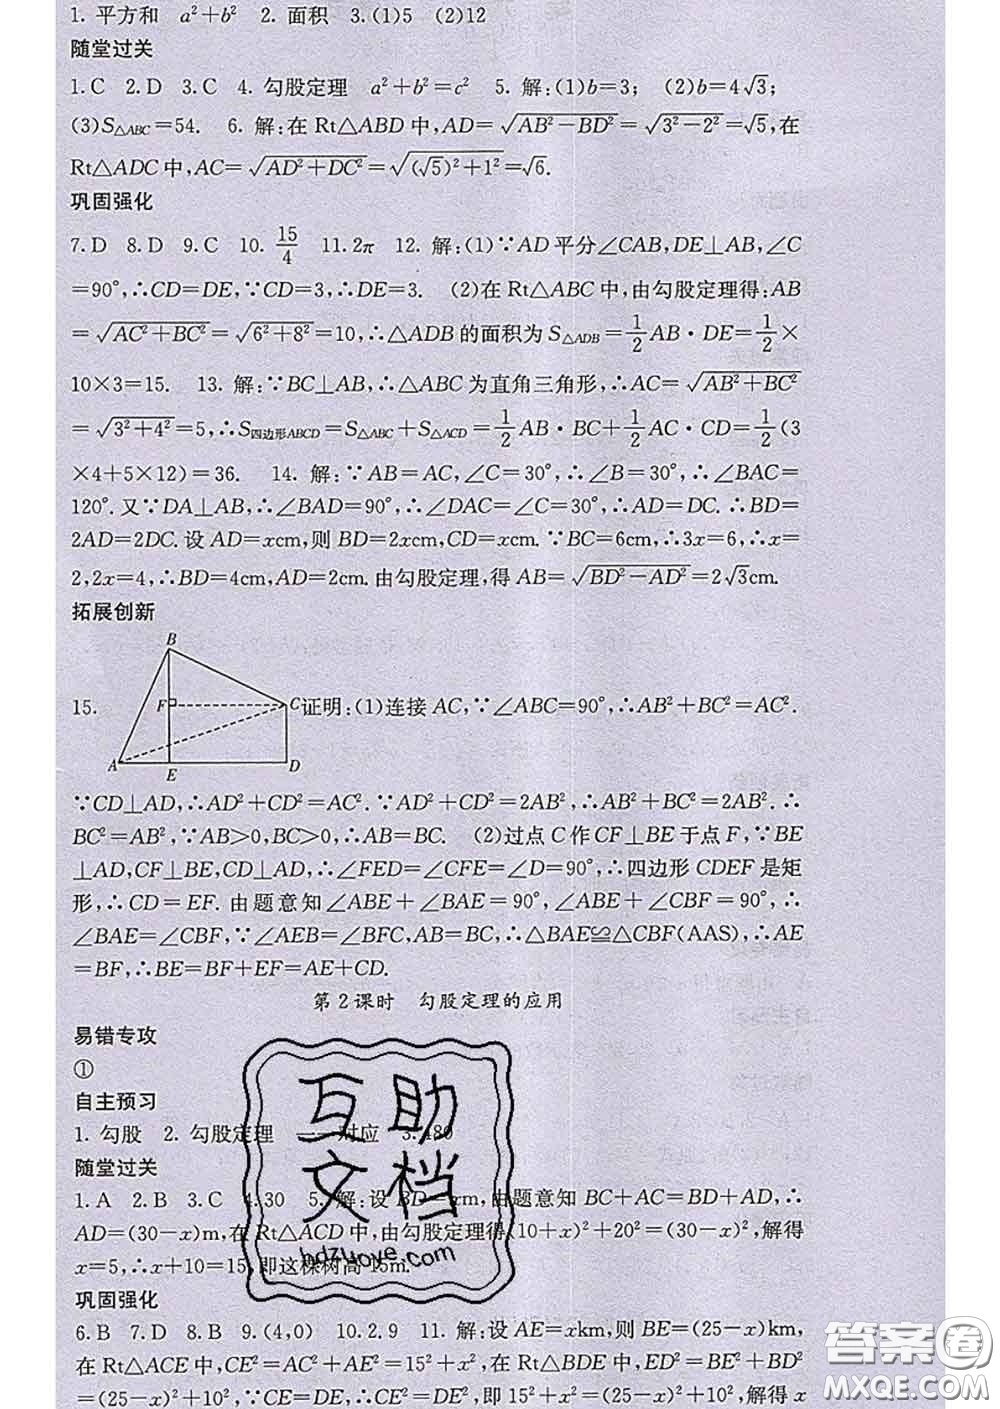 1. 平方和 a²+b² 2. 面积 3.(1)5 (2)12
随堂过关
1.C 2.D 3.C 4. 勾股定理 a²+b²=c² 5. 解:(1)b=3; (2)b=4√3;
(3)S△ABC=54. 6. 解:在 Rt△ABD 中,AD=√(AB²-BD²)=√(3²-2²)=√5,在
Rt△ADC 中,AC=√(AD²+DC²)=√((√5)²+1²)=√6.
巩固强化
7.D 8.D 9.C 10. 15/4 11.2π 12. 解:(1)∵AD 平分∠CAB,DE⊥AB,∠C
=90°,∴CD=DE,∵CD=3,∴DE=3. (2)在 Rt△ABC 中,由勾股定理得:AB
=√(AC²+BC²)=√(6²+8²)=10,∴△ADB 的面积为 S△ADB=1/2 AB·DE=1/2×
10×3=15. 13. 解:∵BC⊥AB,∴△ABC 为直角三角形,∴AC=√(AB²+BC²)
=√(3²+4²)=5,∴S四边形ABCD=S△ABC+S△ACD=1/2 AB·BC+1/2 AC·CD=1/2(3
×4+5×12)=36. 14. 解:∵AB=AC,∠C=30°,∴∠B=30°,∴∠BAC=
120°.又∵DA⊥AB,∴∠BAD=90°,∴∠DAC=∠C=30°,∴AD=DC.∴BD=
2AD=2DC.设 AD=xcm,则 BD=2xcm,CD=xcm.∵BC=6cm,∴3x=6,∴x=
2,2x=4,∴BD=4cm,AD=2cm.由勾股定理,得 AB=√(BD²-AD²)=2√3cm.
拓展创新
B
F
C
A
E
D
15. 证明:(1)连接 AC,∵∠ABC=90°,∴AB²+BC²=AC².
∵CD⊥AD,∴AD²+CD²=AC².∵AD²+CD²=2AB²,∴AB²+BC²=2AB².∴
BC²=AB²,∵AB>0,BC>0,∴AB=BC. (2)过点 C 作 CF⊥BE 于点 F,∵BE
⊥AD,CF⊥BE,CD⊥AD,∴∠FED=∠CFE=∠D=90°,∴四边形 CDEF 是矩
形,∴CD=EF. 由题意知∠ABE+∠BAE=90°,∠ABE+∠CBF=90°,∴
∠BAE=∠CBF,∵∠AEB=∠BFC,AB=BC,∴△BAE≌△CBF(AAS),∴AE
=BF,∴BE=BF+EF=AE+CD.
第 2 课时 勾股定理的应用
易错专攻
①
自主预习
1. 勾股 2. 勾股定理 一一对应 3.480
随堂过关
1.A 2.B 3.C 4.30 5. 解:设 BD=xm,由题意知 BC+AC=BD+AD,∴
AD=(30-x)m,在 Rt△ACD 中,由勾股定理得(10+x)²+20²=(30-x)²,解得
x=5,∴x+10=15,即这棵树高 15m.
巩固强化
6.B 7.D 8.B 9.(4,0) 10.2.9 11. 解:设 AE=xkm,则 BE=(25-x)km,
在 Rt△ACE 中,CE²=AC²+AE²=15²+x²,在 Rt△BDE 中,ED²=BE²+BD²
=(25-x)²+10²,∵CE=DE,∴CE²=DE²,即 15²+x²=(25-x)²+10²,解得 x
互助
文档
hdzuoye.com
答案圈
MXQE.COM